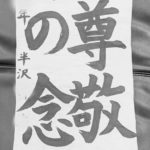 尊敬
の念
年 半沢